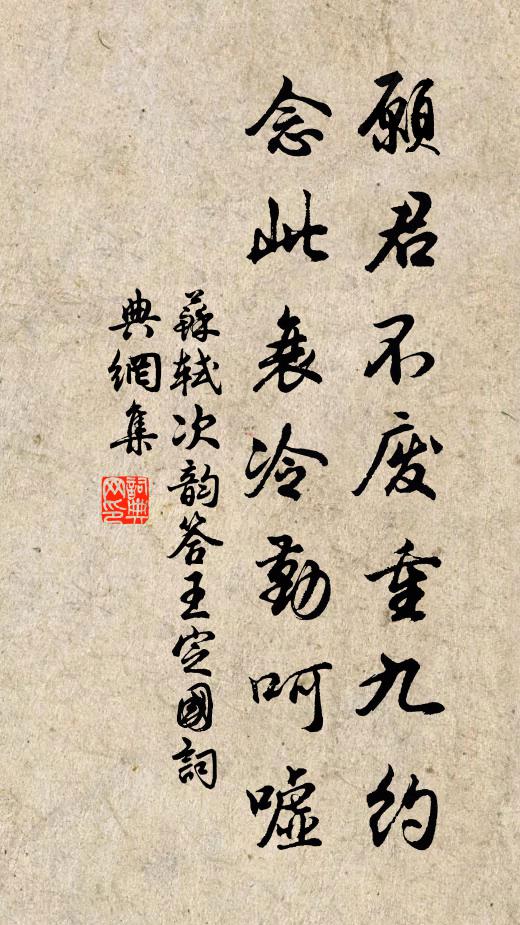 願君不废重九約
念此衰冷勤呵嘘
蘇軾次韵答王定國詞
典網集
詞典網印